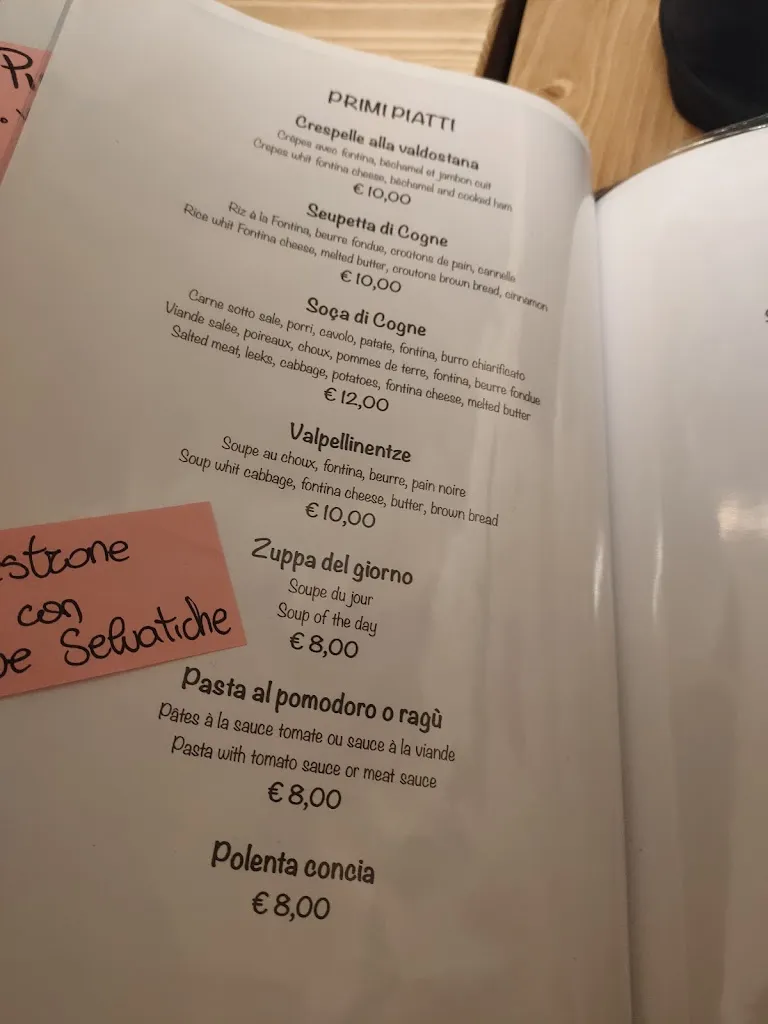 PRIMI PIATTI
Crespelle alla valdostana
Crêpes avec fontina, béchamel et jambon cuit
Crepes whit fontina cheese, béchamel and cooked ham
€ 10,00
Seupetta di Cogne
Riz à la Fontina, beurre fondue, croutons de pain, cannelle
Rice whit Fontina cheese, melted butter, croutons brown bread, cinnamon
€ 10,00
Soça di Cogne
Carne sotto sale, porri, cavolo, patate, fontina, burro chiarificato
Viande salée, poireaux, choux, pommes de terre, fontina, beurre fondue
Salted meat, leeks, cabbage, potatoes, fontina cheese, melted butter
€ 12,00
Valpellinentze
Soupe au choux, fontina, beurre, pain noire
Soup whit cabbage, fontina cheese, butter, brown bread
€ 10,00
Zuppa del giorno
Soupe du jour
Soup of the day
€ 8,00
Pasta al pomodoro o ragù
Pâtes à la sauce tomate ou sauce à la viande
Pasta with tomato sauce or meat sauce
€ 8,00
Polenta concia
€ 8,00
strone
con
be Selvatiche